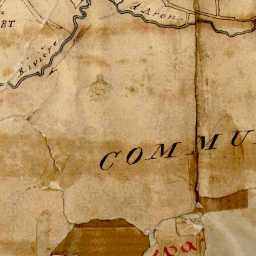 ET
Rivière
d'Aron
COMMU